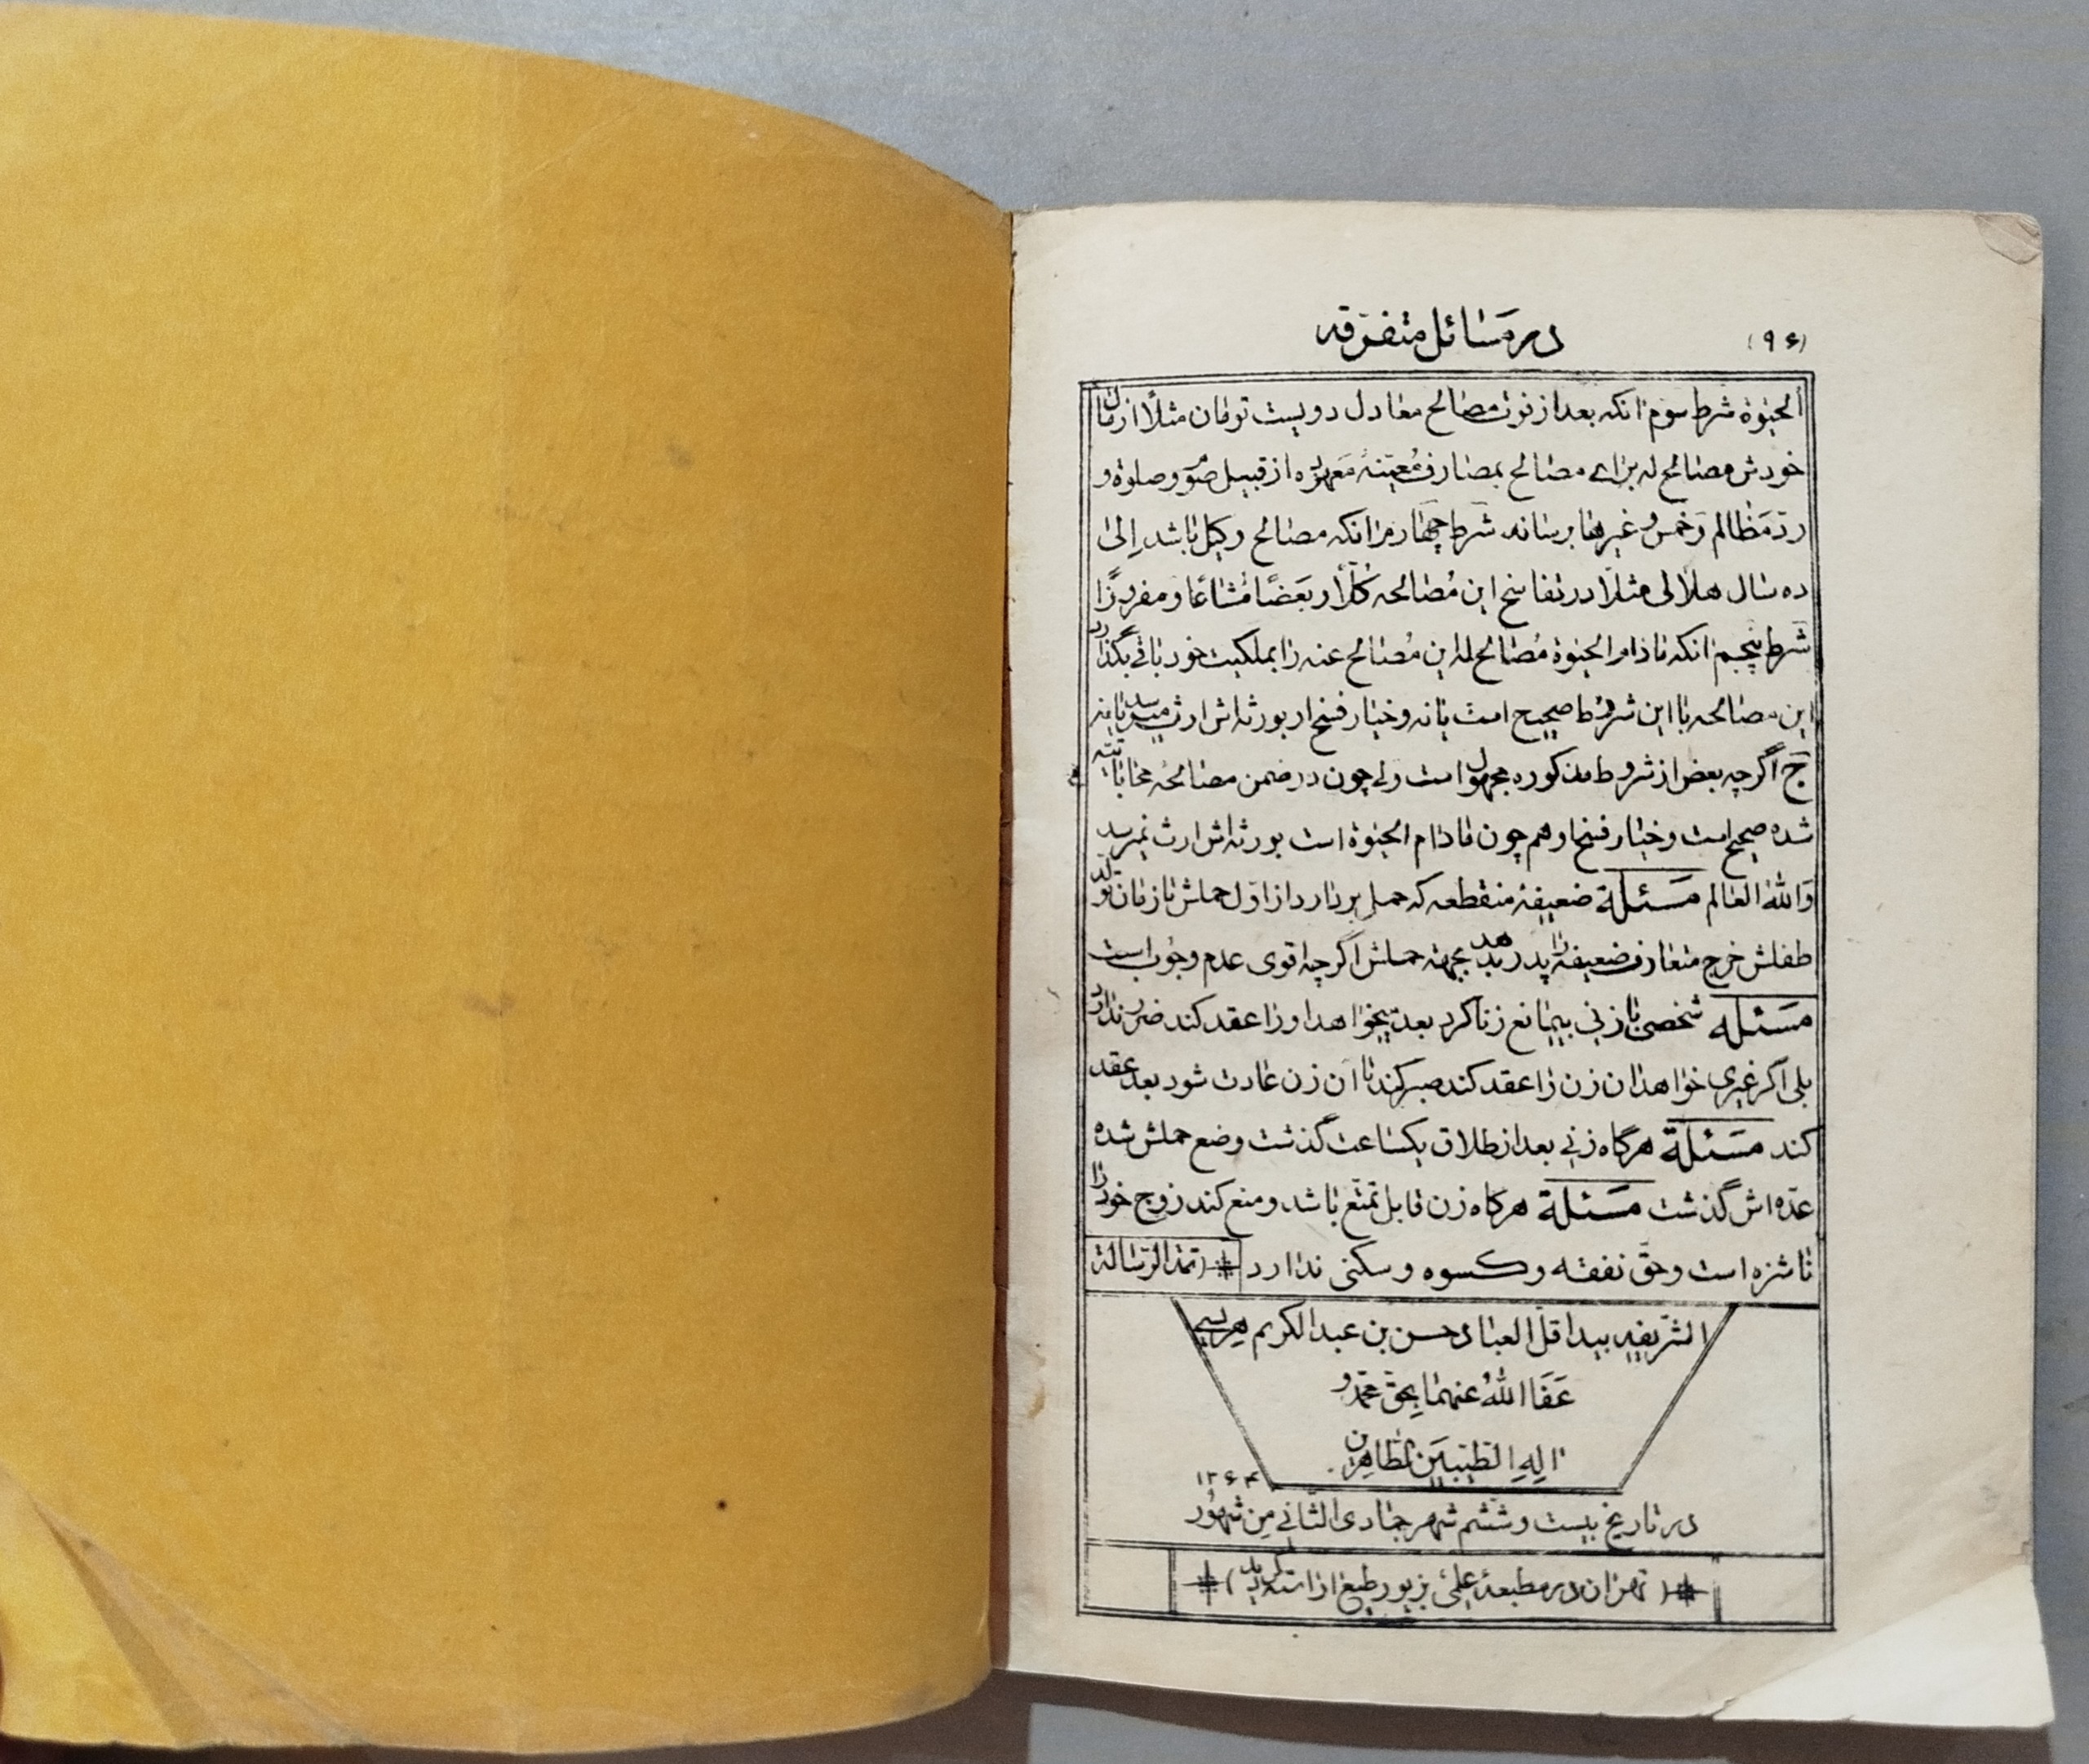 (۹۶)
در مسائل متفرقه
الحیوة شرط سوم انکه بعد از فوت مصالح معادل دویست تومان مثلاً از مال
خودش مصالح له برای مصالح بمصارف معینهٔ معهوده از قبیل صوم و صلوة و
رد مظالم و خمس و غیرها برساند شرط چهارم انکه مصالح وکیل باشد اِلیٰ
ده سال هلالی مثلاً در تفاسخ این مُصالحه کُلّاً و بَعضاً مُشاعًا و مفروزًا
شرط پنجم انکه مادام الحیوة مُصالح له این مُصالح عنه را بملکیت خود باقی بگذارد
این مصالحه با این شروط صحیح است یا نه و خیار فسخ او بورثه اش ارث میرسد یا نه
ج اگرچه بعض از شروط مذکوره مجهول است ولی چون در ضمن مصالحهٔ محاباتیّه
شده صحیح است و خیار فسخ او هم چون مادام الحیوة است بورثه اش ارث نمیرسد
وَاللهُ العٰالم مَسئلة ضعیفهٔ منقطعه که حمل بردارد از اوّل حملش تا زمان تولّد
طفلش خرج متعارف ضعیفه را پدر بدهد بجهة حملش اگر چه اقوی عدم وجوب است
مَسئله شخصی با زنی بیمانع زنا کرد بعد بخواهد او را عقد کند ضرر ندارد
بلی اگر غیری خواهد ان زن را عقد کند صبر کند تا آن زن عادت شود بعد عقد
کند مَسئلة هرگاه زنی بعد از طلاق یکساعت گذشت وضع حملش شده
عدّه اش گذشت مَسئلة هرگاه زن قابل تمتّع باشد و منع کند زوج خود را
ناشزه است و حقّ نفقه و کسوه و سکنی ندارد (تمت الرّسالة
الشّریفه بید اقل العباد حسن بن عبدالکریم هریسی
عَفَا اللهُ عنهما بِحقّ محمّد و
اٰلِهِ الطَّیّبینَ الطّاهرین
۱۳۶۴
در تاریخ بیست و ششم شهر جمادی الثّانی مِن شهُور
(تهران در مطبعهٔ علمی بزیور طبع اراسته گردید)